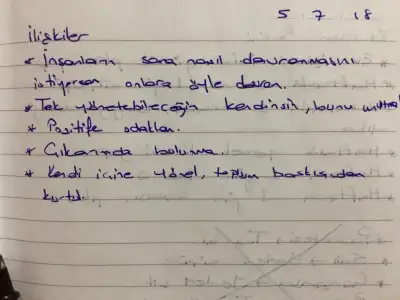 5 7 18
İlişkiler
* İnsanların sana nasıl davranmasını
istiyorsan onlara öyle davran.
* Tek yönetebileceğin kendinsin, bunu unutma!
* Pozitife odaklan.
* Çıkarımda bulunma.
* Kendi içine yönel, toplum baskısından
kurtul.